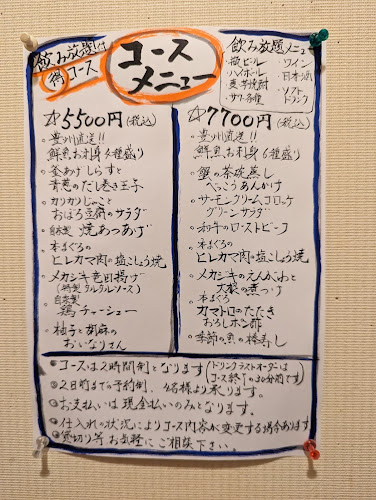 飲み放題付
得コース
コース
メニュー
飲み放題メニュー
・樽ビール
・ハイボール
・麦芋焼酎
・サワー各種
・ワイン
・日本酒
・ソフト
ドリンク
☆5500円(税込)
・豊州直送!!
鮮魚お刺身4種盛り
・釜あげしらすと
青葱のだし巻き玉子
・カリカリじゃこと
おぼろ豆腐のサラダ
・自家製 焼あつあげ
・本まぐろの
ヒレカマ肉の塩こしょう焼
・メカジキ竜田揚げ
(特製タルタルソース)
・自家製
鶏チャーシュー
・柚子と胡麻の
おいなりさん
☆7700円(税込)
・豊州直送!!
鮮魚お刺身6種盛り
・蟹の茶碗蒸し
べっこうあんかけ
・サーモンクリームコロッケ
グリーンサラダ
・和牛のローストビーフ
・本まぐろの
ヒレカマ肉の塩こしょう焼
・メカジキのえんがわと
大根の煮つけ
・本まぐろ
カマトロのたたき
おろしポン酢
・季節の魚の棒寿し
●コースは2時間制となります(ドリンクラストオーダーは
コース終了の30分前です)
●2日前までの予約制、4名様より承ります。
●お支払いは現金払いのみとなります。
●仕入れの状況によりコース内容が変更する場合あります
●貸切り等お気軽にご相談下さい。